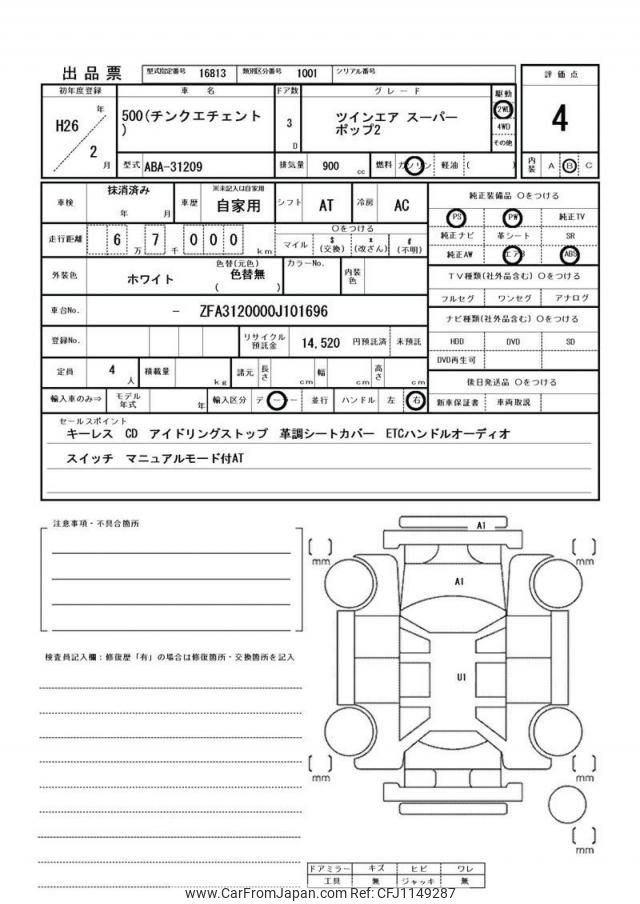 出品票 型式指定番号 16813 類別区分番号 1001 シリアル番号 評価点
初年度登録 車名 ドア数 グレード 駆動
H26 年 2 月
500(チンクエチェント
)
3 D
ツインエア スーパー
ポップ2
2WD
4WD
その他
4
型式 ABA-31209 排気量 900 cc 燃料 ガソリン 軽油 ( ) 内装 A B C
車検 抹消済み 年 月 車歴 ※未記入は自家用 自家用 シフト AT 冷房 AC
純正装備品 〇をつける
走行距離 6 万 7 千 0 0 0 km 〇をつける
マイル $ (交換) * (改ざん) # (不明)
PS PW 純正TV
純正ナビ 革シート SR
純正AW エアB ABS
外装色 ホワイト 色替(元色) 色替無 ( ) カラーNo. 内装色
TV種類(社外品含む) 〇をつける
フルセグ ワンセグ アナログ
車台No. - ZFA3120000J101696
ナビ種類(社外品含む) 〇をつける
登録No. リサイクル預託金 14,520 円預託済 未預託
HDD DVD SD
DVD再生可
定員 4 人 積載量 kg 諸元 長さ cm 幅 cm 高さ cm
後日発送品 〇をつける
輸入車のみ⇒ モデル年式 年 輸入区分 ディーラー 並行 ハンドル 左 右 新車保証書 車両取説
セールスポイント
キーレス CD アイドリングストップ 革調シートカバー ETCハンドルオーディオ
スイッチ マニュアルモード付AT
注意事項・不具合箇所
検査員記入欄:修復歴「有」の場合は修復箇所・交換箇所を記入
A1
[ ] mm [ ] mm
A1
U1
[ ] mm [ ] mm
[ ] mm
ドアミラー キズ ヒビ ワレ
工具 無 ジャッキ 無
www.CarFromJapan.com - CFJ1149287